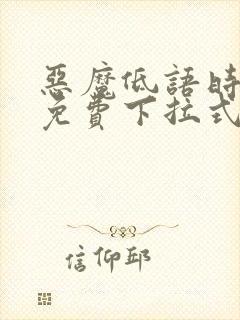 惡魔低語時
免費下拉式
信仰邱